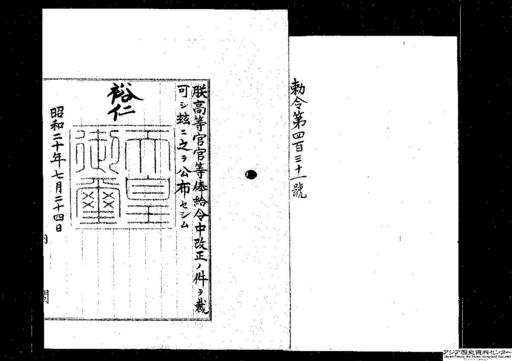 勅令第四百三十一號
朕高等官官等俸給令中改正ノ件ヲ裁
可シ玆ニ之ヲ公布セシム
裕仁
天皇御璽
昭和二十年七月二十四日
内閣
アジア歴史資料センター